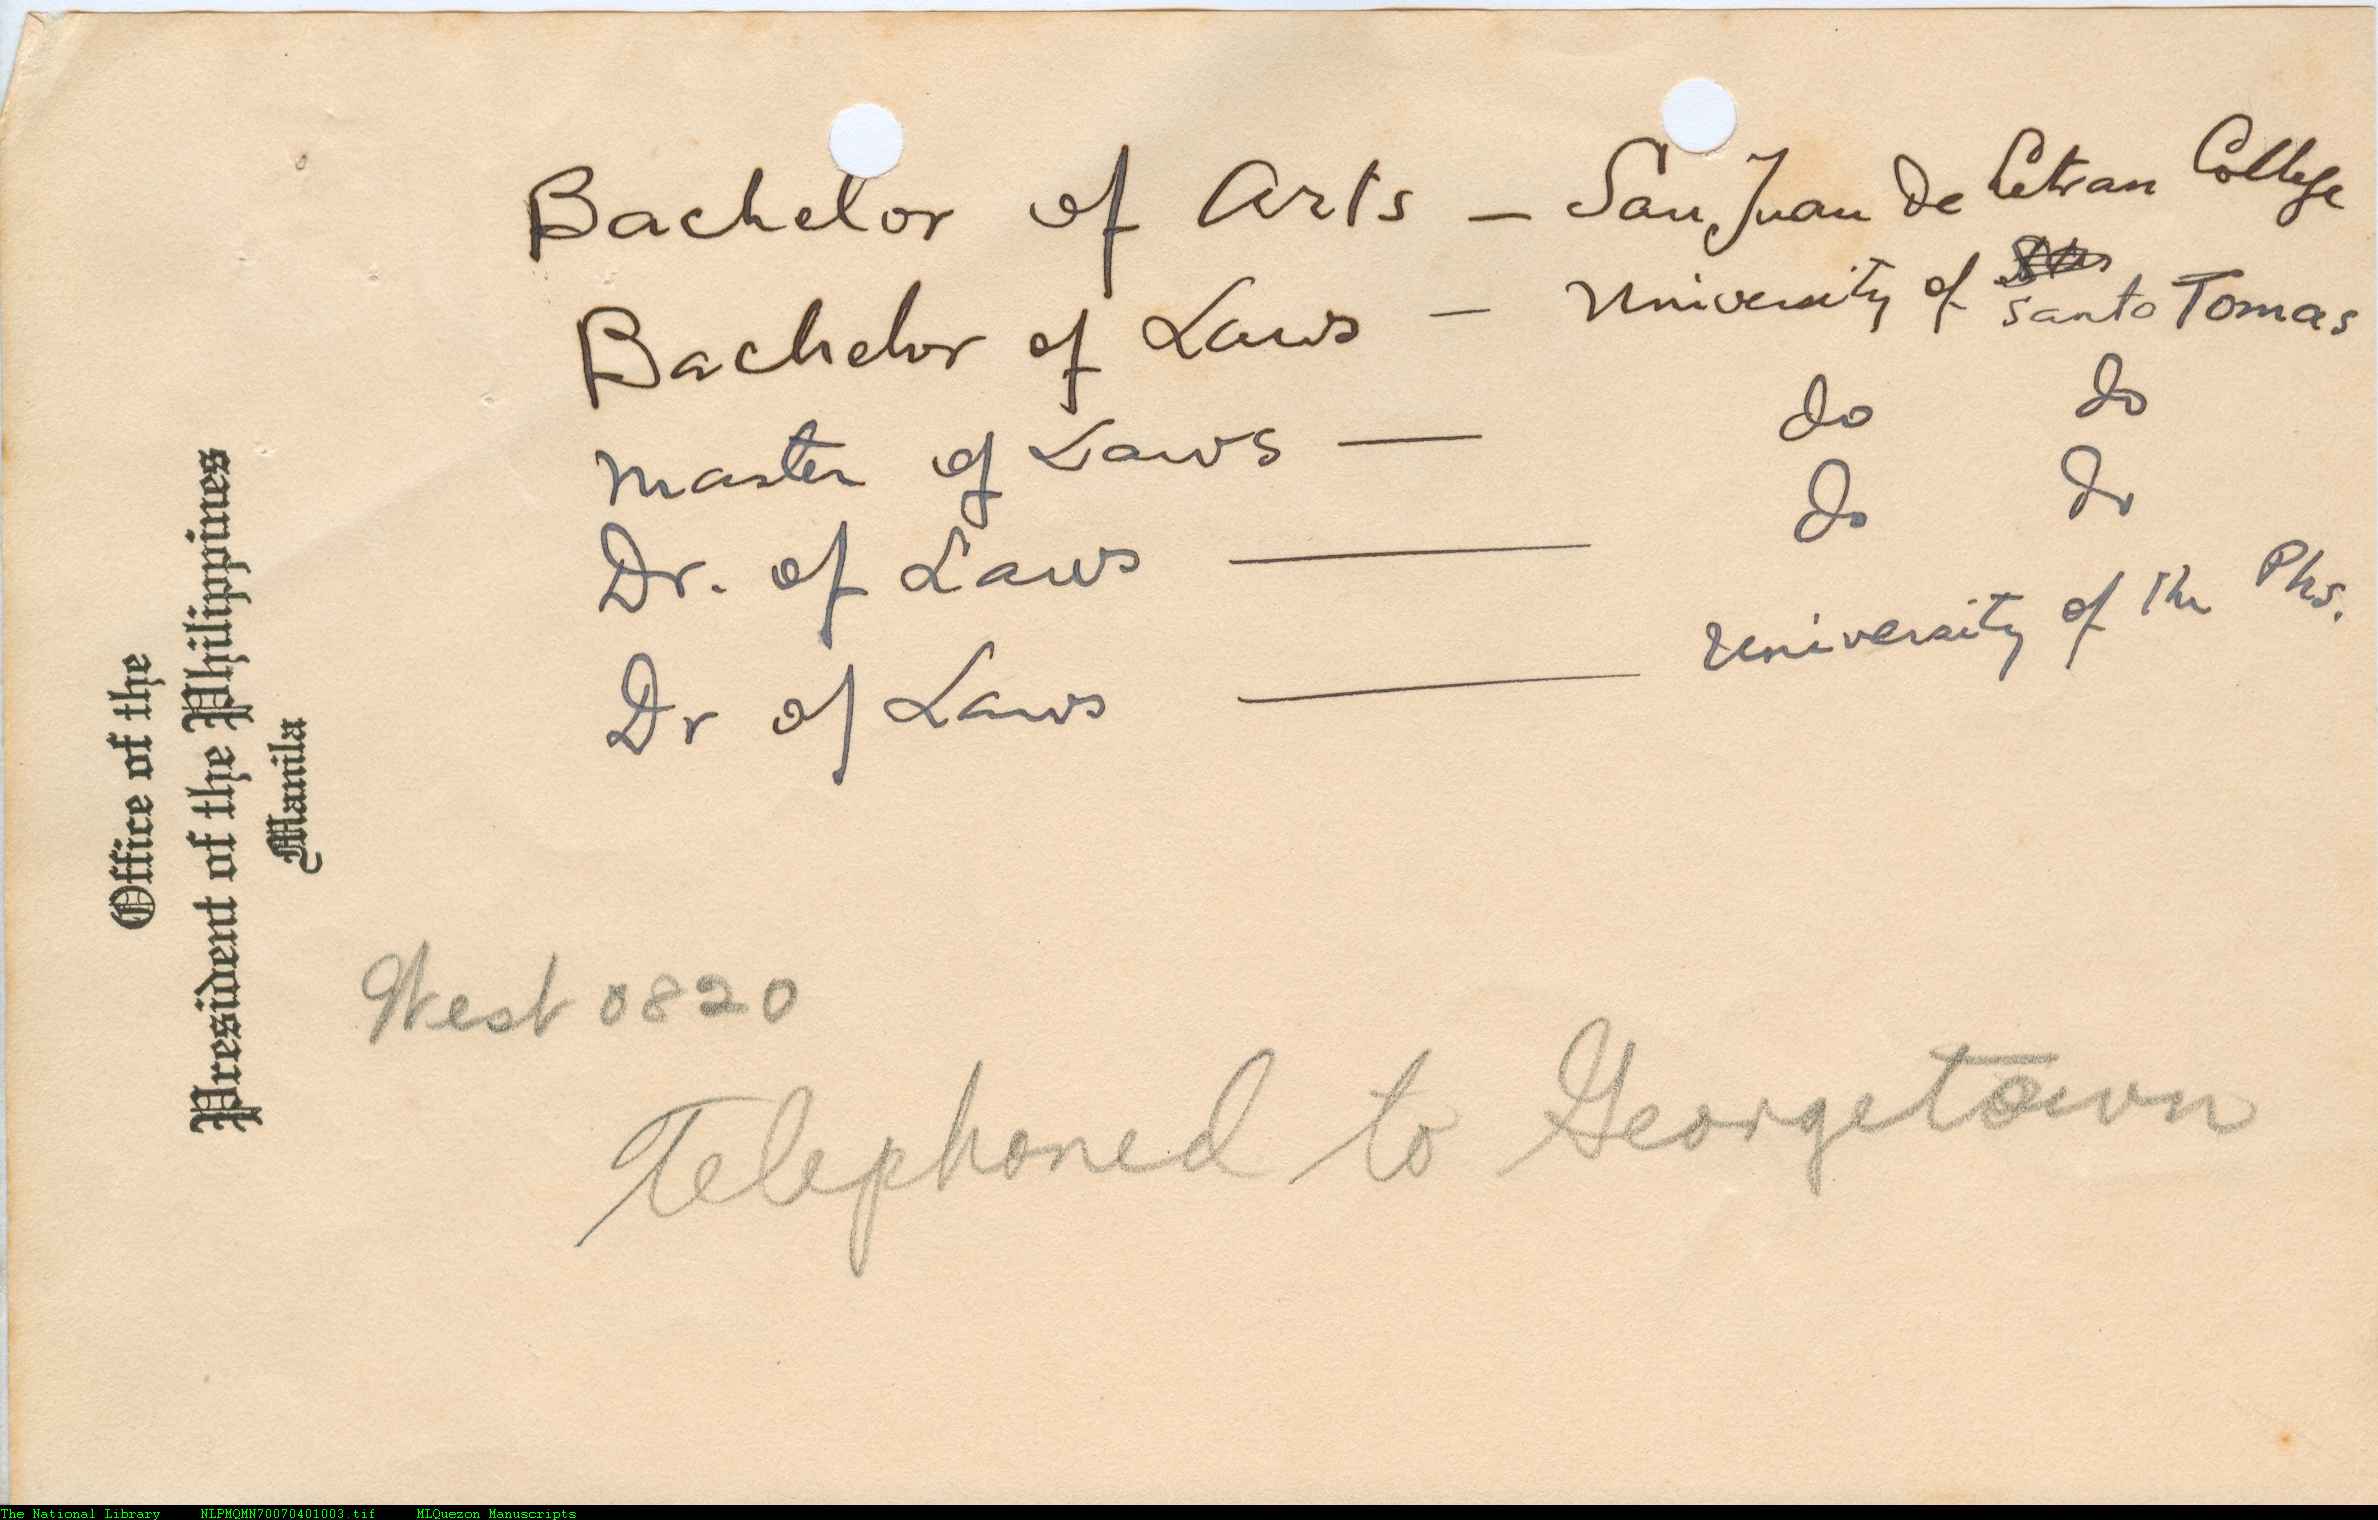 Office of the
President of the Philippines
Manila
Bachelor of Arts – San Juan de Letran College
Bachelor of Laws – University of Santo Tomas
Master of Laws — do do
Dr. of Laws — do do
Dr of Laws — University of the Phs.
West 0820
Telephoned to Georgetown
The National Library NLPMQMN70070401003.tif MLQuezon Manuscripts